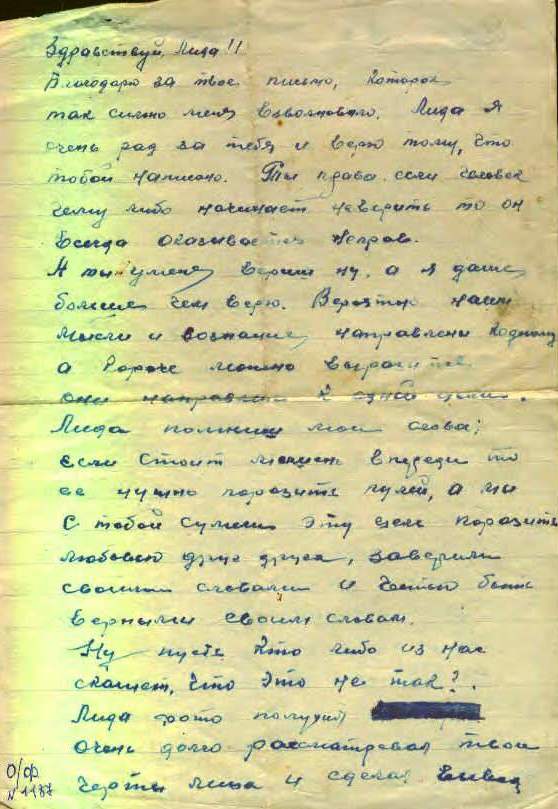 Здравствуй, Лида!!
Благодарю за твое письмо, которое
так сильно меня взволновало. Лида я
очень рад за тебя и верю тому, что
тобой написано. Ты права если человек
чему либо начинает неверить то он
всегда оказывается неправ.
А ты умеешь верить ну, а я даже
больше чем верю. Вероятно наши
мысли и сознание направлены кодному
а короче можно выразится
они направлены к одной цели.
Лида помниш мои слова;
если стоит мишень впереди то
ее нужно поразить пулей, а мы
с тобой сумели эту цель поразить
любовью друг друга, заверили
своими словами и честью быть
верными своим словам.
Ну пусть кто либо из нас
скажет, что это не так?.
Лида фото получил
очень долго рассматривал твои
черты лица и сделал вывод
О/ф
N 1187